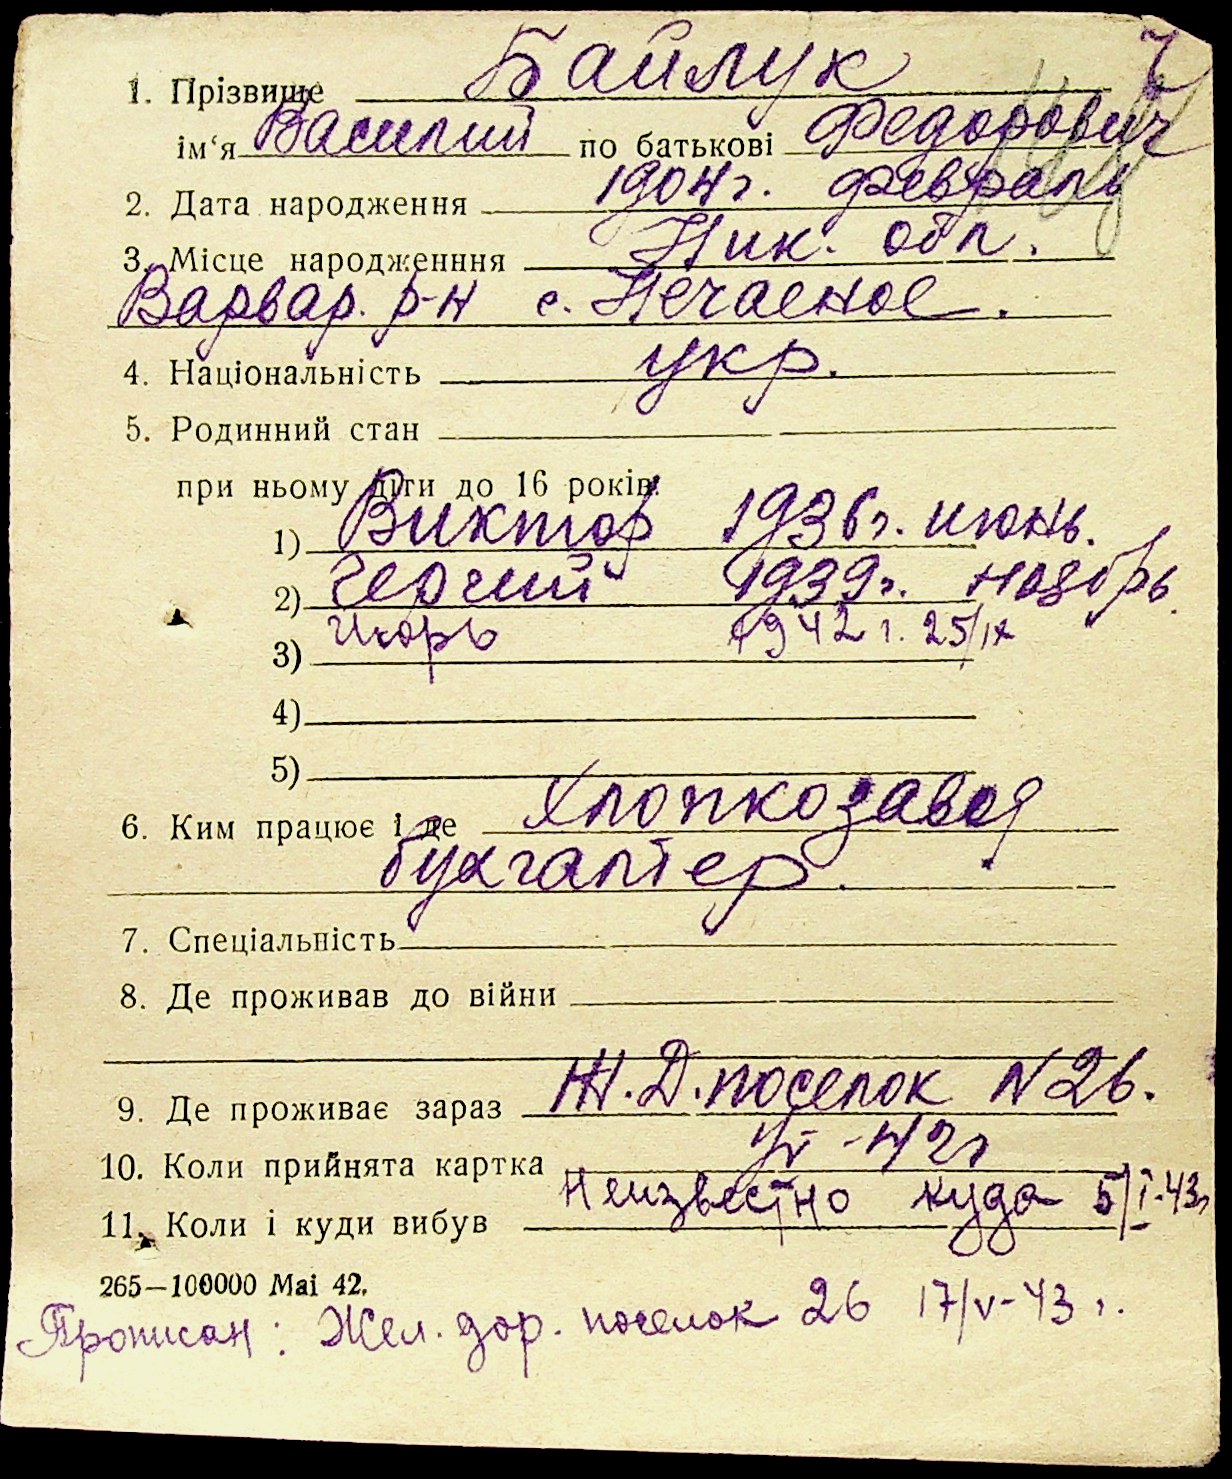 1. Прізвище Байлук
ім‘я Василий по батькові Федорович
2. Дата народження 1904 г. февраль
3. Місце народженння Ник. обл.
Варвар. р-н с. Нечаеное.
4. Національність укр.
5. Родинний стан
при ньому діти до 16 років:
1) Виктор 1936 г. июнь.
2) Георгий 1939 г. ноябрь.
3) Игорь 1942 г. 25/IX
4)
5)
6. Ким працює і де Хлопкозавод
бухгалтер.
7. Спеціальність
8. Де проживав до війни
9. Де проживає зараз Ж.Д. поселок N 26.
10. Коли прийнята картка VI-42 г
11. Коли і куди вибув неизвестно куда 5/I-43 г
265—100000 Mai 42.
Прописан: Жел. дор. поселок 26 17/V-43 г.